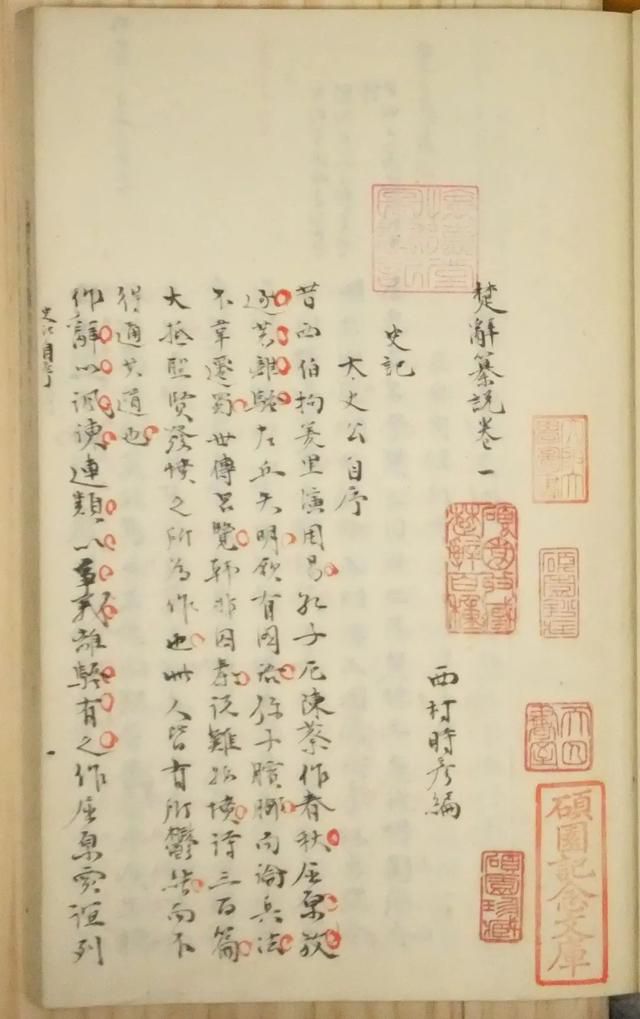 碩園記念文庫
碩園珍藏
天囚書室
楚辭纂説卷一
西村時彦編
史記
太史公自序
昔西伯拘羑里演周易孔子厄陳蔡作春秋屈原放
逐著離騷左丘失明厥有國語孫子臏脚而論兵法
不韋遷蜀世傳呂覽韓非囚秦説難孤憤詩三百篇
大抵聖賢發憤之所為作也此人皆有所鬱結而不
得通其道也
作辭以諷諫連類以爭義離騷有之作屈原賈誼列
史記自序